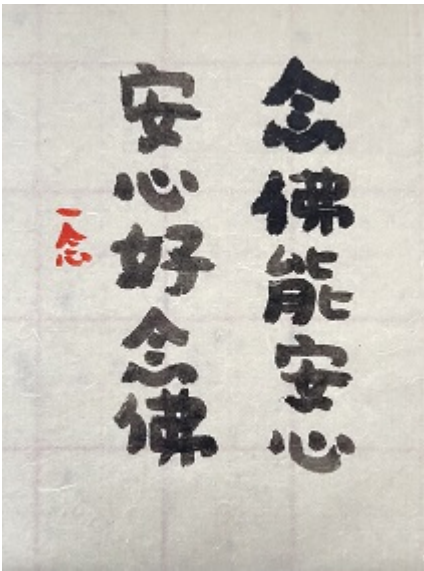 念佛能安心
安心好念佛
一念